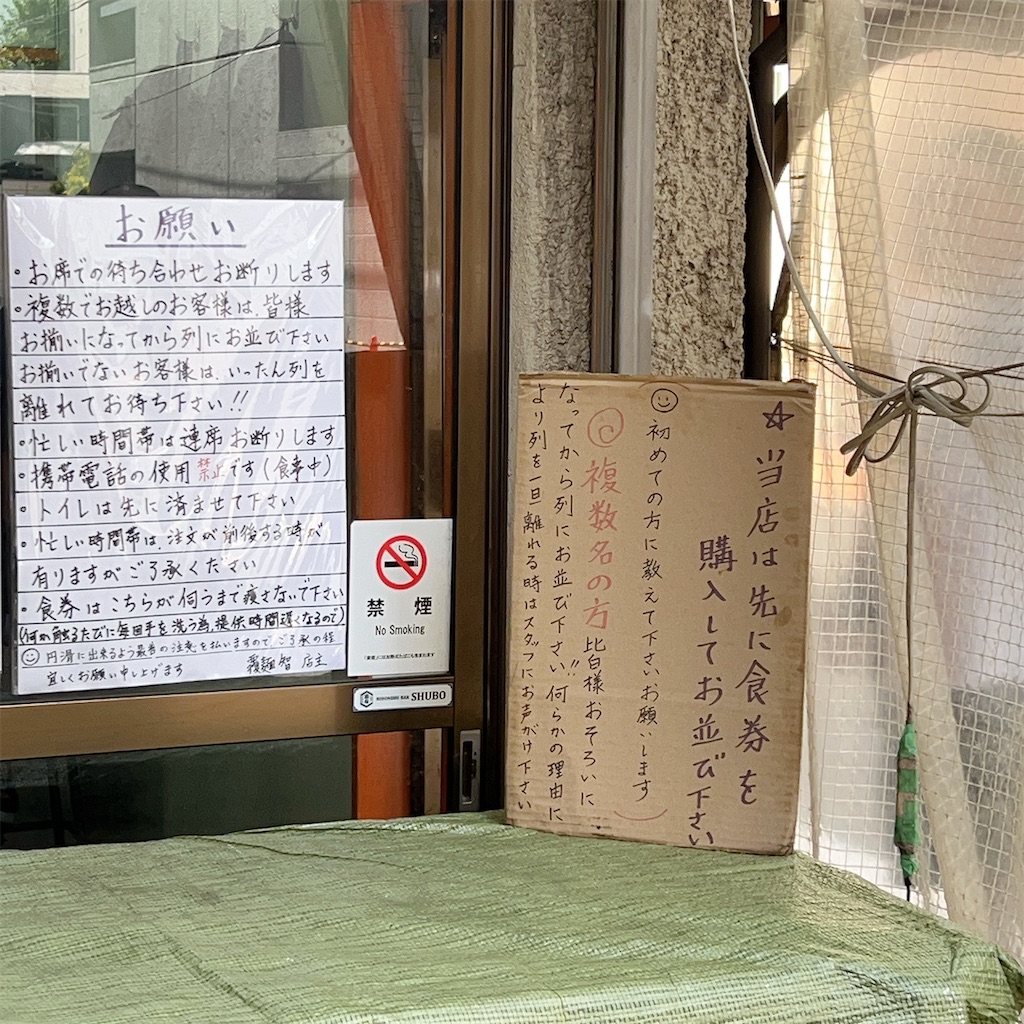 お願い
・お席での待ち合わせお断りします
・複数でお越しのお客様は、皆様
お揃いになってから列にお並び下さい
お揃いでないお客様は、いったん列を
離れてお待ち下さい!!
・忙しい時間帯は連席お断りします
・携帯電話の使用禁止です(食事中)
・トイレは先に済ませて下さい
・忙しい時間帯は、注文が前後する時が
有りますがご了承ください
・食券はこちらが伺うまで痩さないで下さい
(何か触るたびに毎回手を洗う為、提供時間遅くなるので)
円滑に出来るよう最善の注意を払いますので、ご了承の程
宜しくお願い申し上げます 店主
禁煙
No Smoking
SHUBO
☆当店は先に食券を
購入してお並び下さい
初めての方に教えて下さいお願いします)
複数名の方 皆様おそろいに
なってから列にお並び下さい!!何らかの理由に
より列を一旦離れる時はスタッフにお声がけ下さい